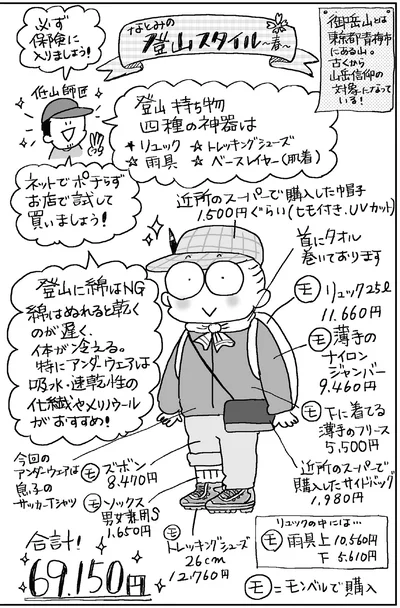 必ず
保険に
入りましょう!
なとみの
登山スタイル
〜春〜
御岳山とは
東京都青梅市
にある山。
古くから
山岳信仰の
対象になって
いる!
低山師匠
登山持ち物
四種の神器は
★リュック ☆トレッキングシューズ
☆雨具 ☆ベースレイヤー(肌着)
ネットでポチらず
お店で試して
買いましょう!
近所のスーパーで購入した帽子
1.500円ぐらい(ヒモ付き.UVカット)
首にタオル
巻いております
登山に綿はNG
綿はぬれると乾く
のが遅く、
体が冷える。
特にアンダーウェアは
吸水・速乾性の
化繊やメリノウール
がおすすめ!
モ リュック25ℓ
11.660円
モ 薄手の
ナイロン
ジャンパー
9.460円
モ 下に着てる
薄手のフリース
5,500円
近所のスーパーで
購入したサイドバッグ
1.980円
今回の
アンダーウェアは
息子の
サッカーTシャツ
モ ズボン
8.470円
モ ソックス
男女兼用S
1.650円
モ
トレッキングシューズ
26cm
12.760円
リュックの中には…
モ 雨具上 10.560円
下 5.610円
合計!
69.150円
モ=モンベルで購入